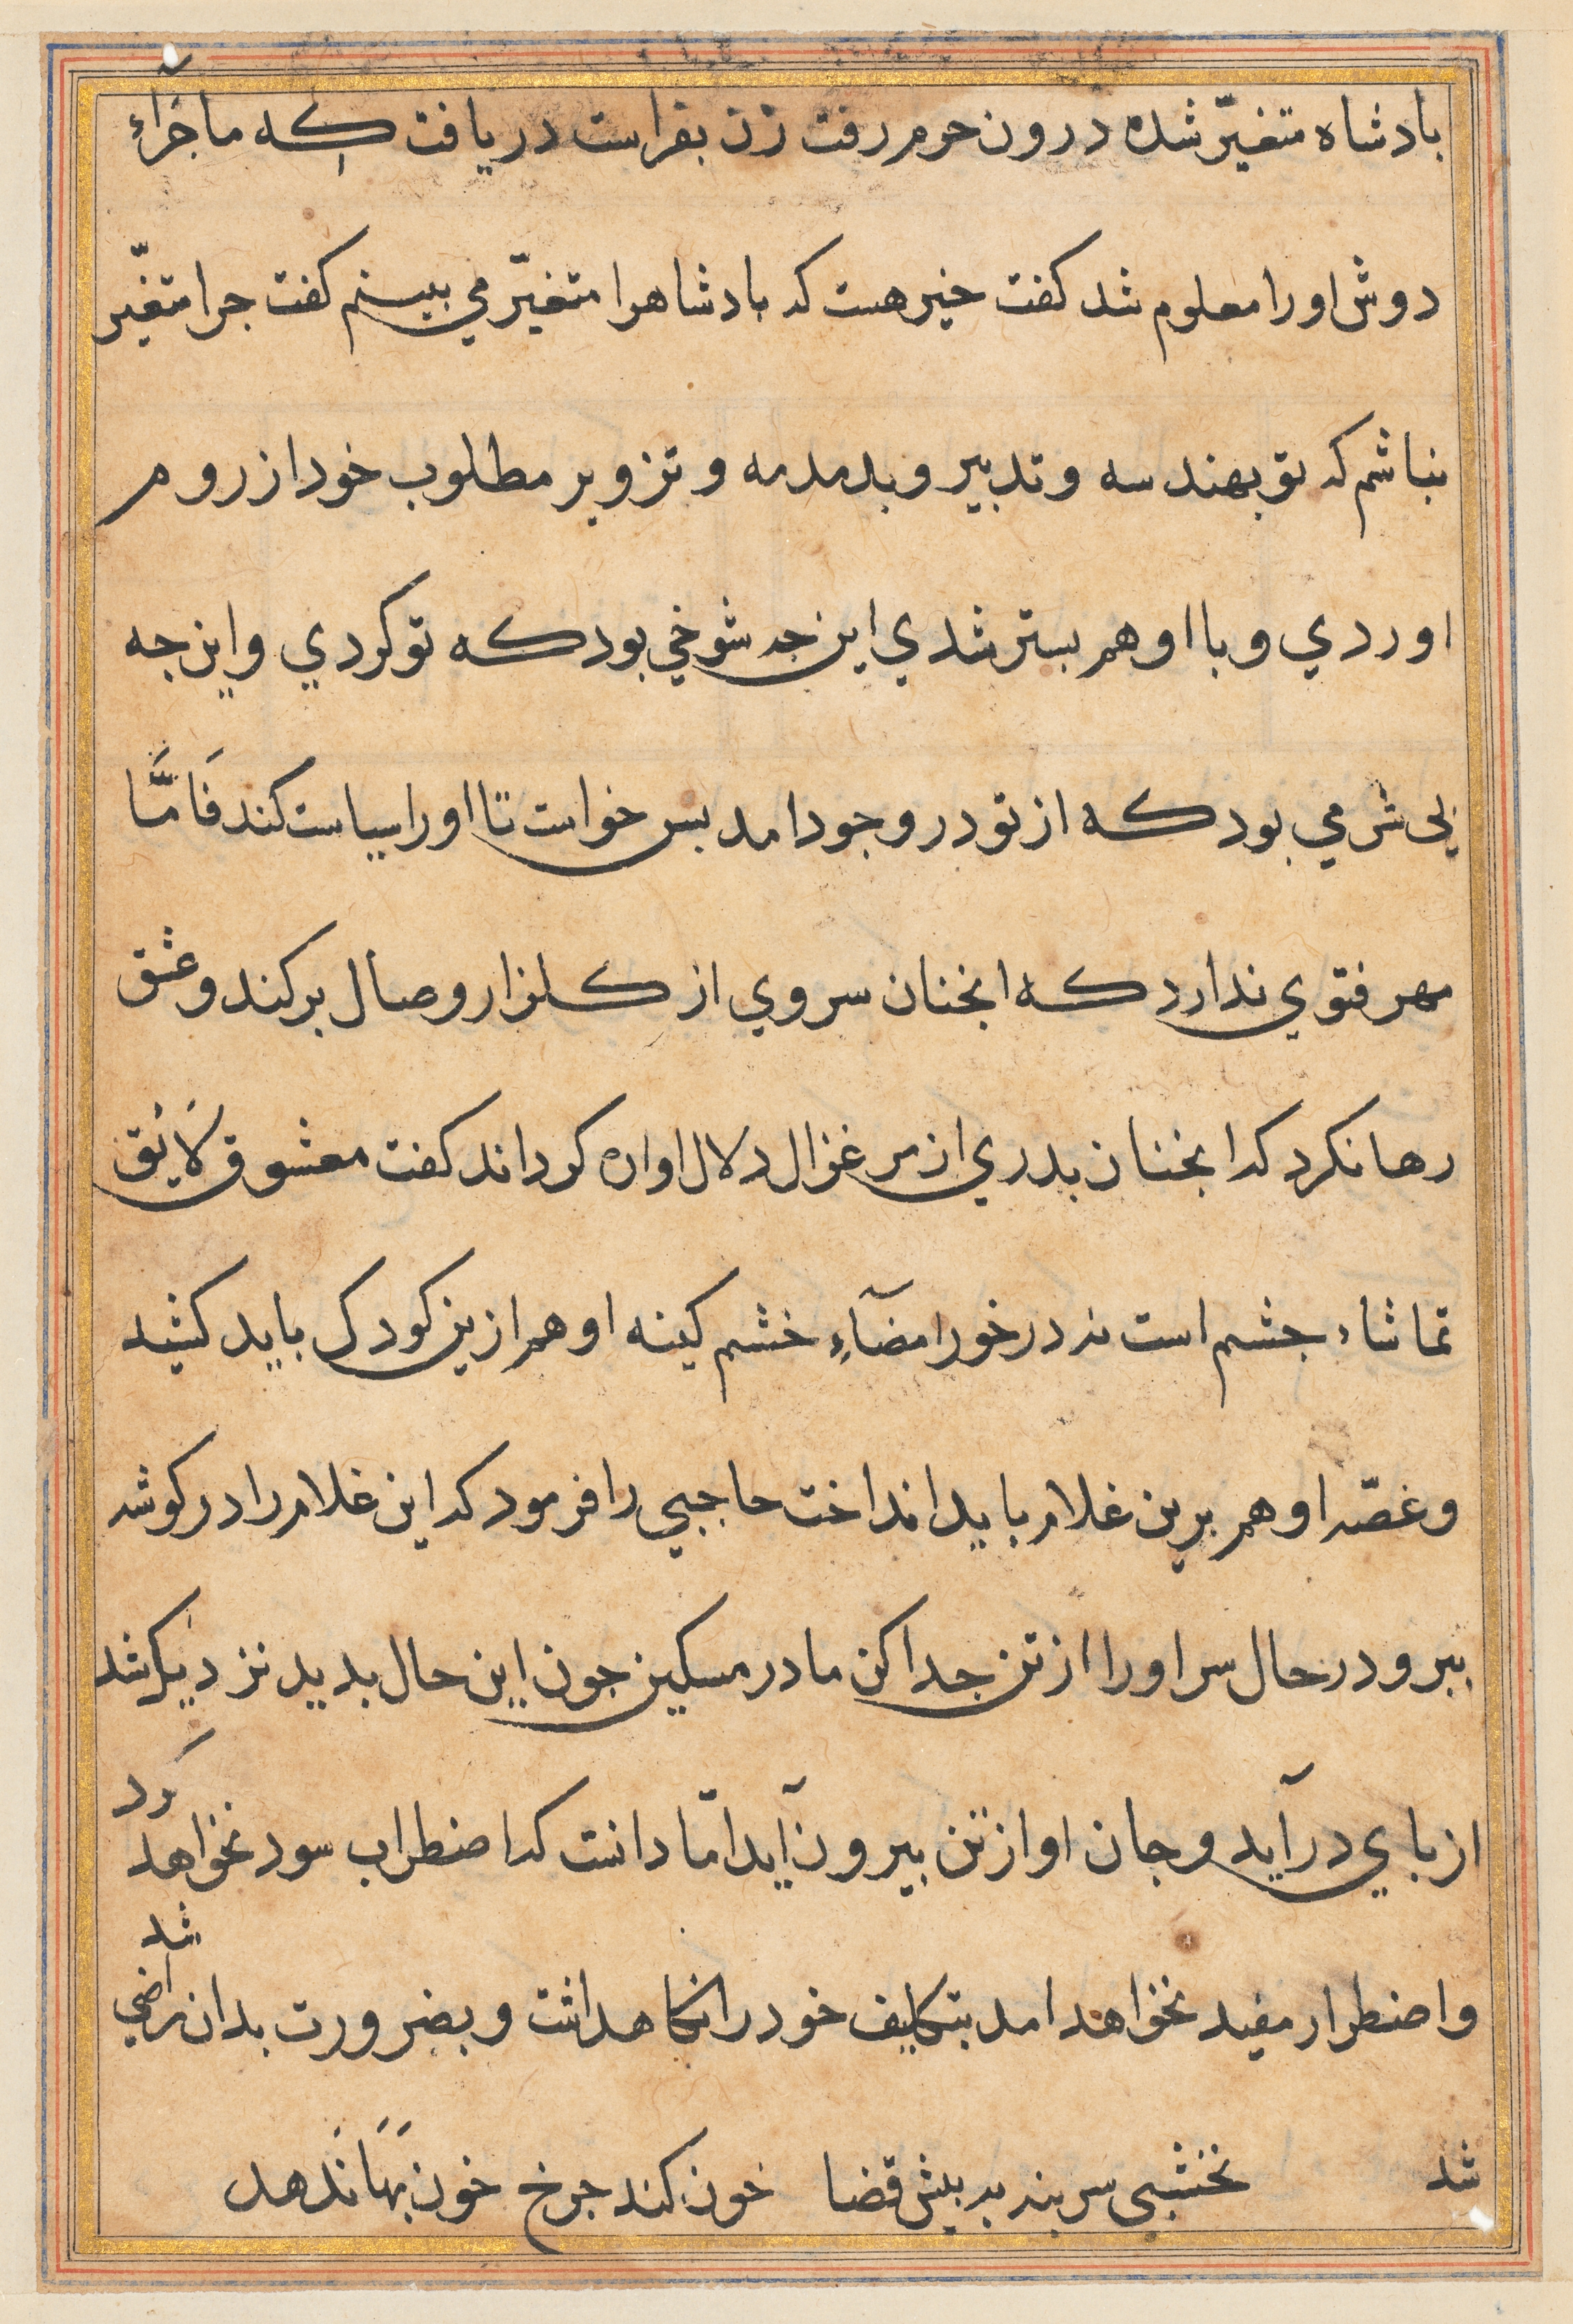 بادشاه متغیّر شده درون حرم رفت زن بفراست دریافت که ماجرَآءِ
دوش او را معلوم شد کفت خیر هست که بادشاهرا متغیّر می بینم کفت جرا متغیّر
نباشم که تو بهندسه و تدبیر و بدمدمه و تزویر مطلوب خود از روم
اوردي و با او هم بستر شدي این جه شوخي بود که تو کردي و این جه
بی شرمي بود که از تو در وجود امد بس خواست تا او را سیاست کند فَامَّا
مهر فتوي ندارد که انجنان سروي از کلزار وصال برکند و عشق
رها نکرد که انجنان بدري از مرغزال دلال اواره کرداند کفت معشوق لَایق
تماشاء جشم است نه در خور امضَآءِ خشم کینه او هم ازین کودک باید کشید
و غصّه او هم برین غلام باید انداخت حاجبي را فرمود که این غلام را در کوشه
ببر و در حال سر او را از تن جدا کن مادر مسکین جون این حال بدید نزدیک شد
از باي درآید و جان او از تن بیرون آید امّا دانست که اضطراب سود نخواهد کرد
و اضطرار مفید نخواهد امد بتکلیف خود را نکاهداشت و بضرورت بدان راضي شد
شد نخشبی سر بنه به بیش قضا خون کند جرخ خون بَهَا ندهد